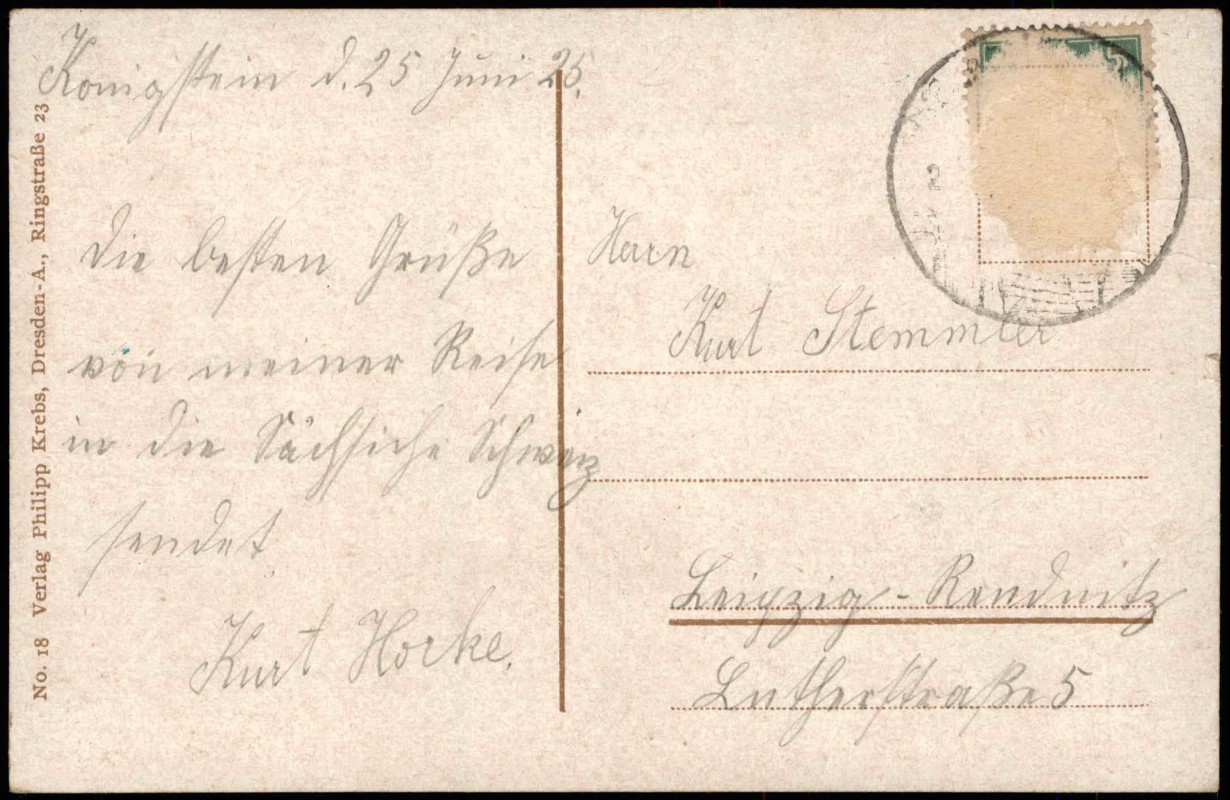 Königstein d. 25 Juni 25.
Die besten Grüße
von meiner Reise
in die Sächsiche Schweiz
sendet
Kurt Horke.
Herrn
Kurt Stemmler
Leipzig - Reudnitz
Lutherstraße 5
No. 18 Verlag Philipp Krebs, Dresden-A., Ringstraße 23